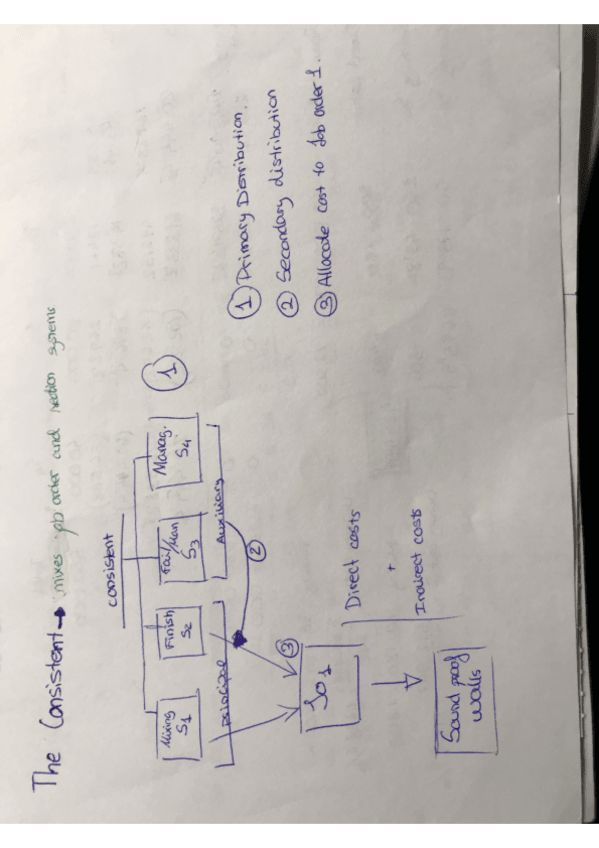 The Consistent → mixes job order and section systems
consistent
①
Mixing
S1
Finish
S2
S3
Manag.
S4
principal
Auxiliary
②
③
JO1
Direct costs
+
Indirect costs
Sound proof
walls
① Primary Distribution.
② Secondary distribution
③ Allocate cost to Job order 1.